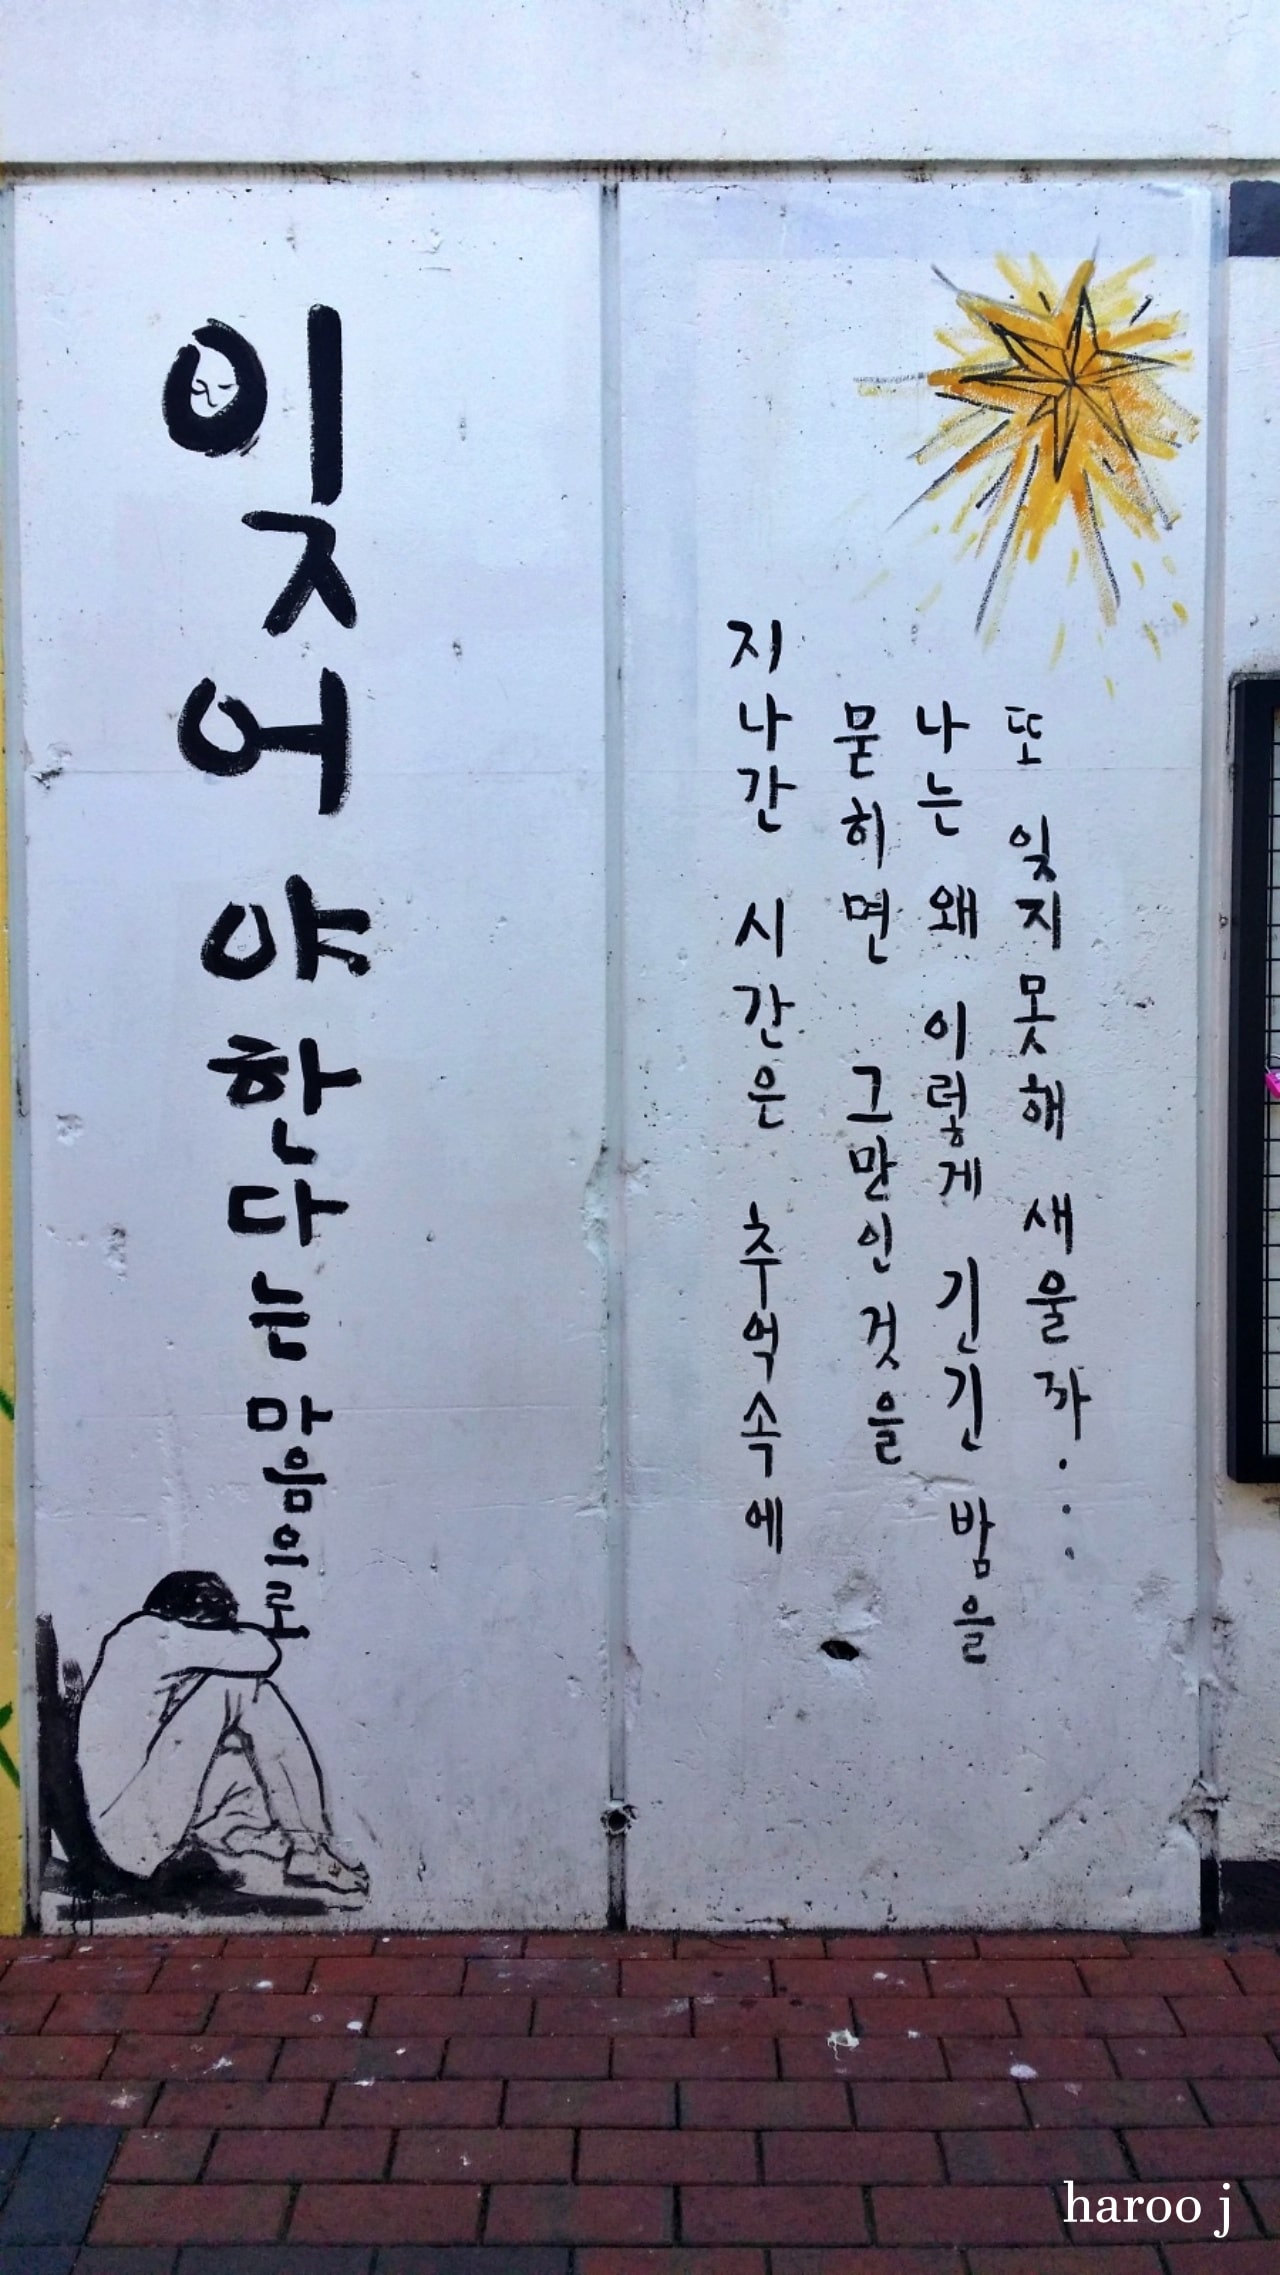 잊어야 한다는 마음으로
지나간 시간은 추억속에
묻히면 그만인 것을
나는 왜 이렇게 긴긴 밤을
또 잊지못해 새울까...
haroo j